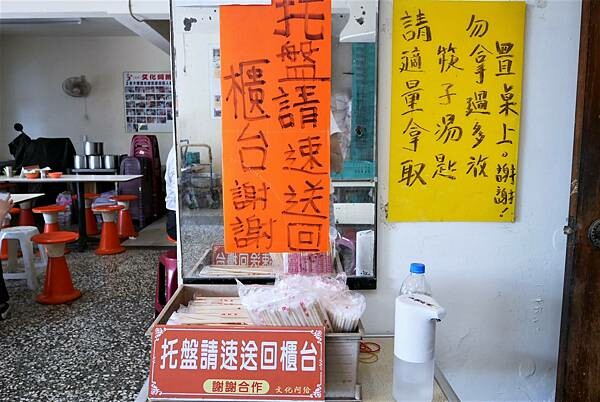 托盤請速送回
櫃台謝謝
請適量拿取
筷子湯匙
勿拿過多放
置桌上。謝謝!
托盤請速送回櫃台
謝謝合作 文化阿給